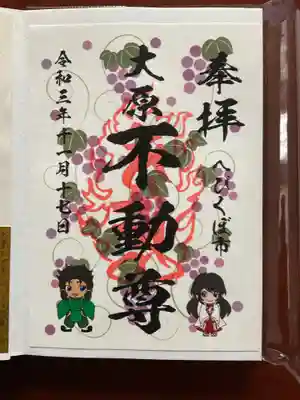 奉拝
へびくぼ市
大原不動尊
令和三年十一月十七日